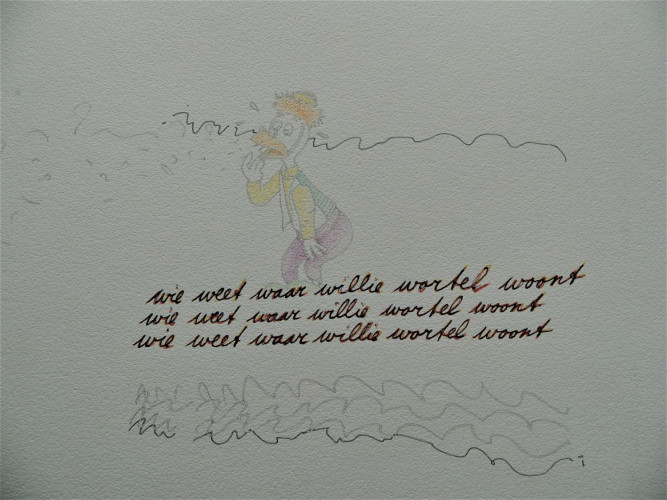 wie weet waar willie wortel woont
wie weet waar willie wortel woont
wie weet waar willie wortel woont